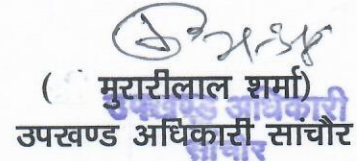 ( मुरारीलाल शर्मा)
उपखण्ड अधिकारी
उपखण्ड अधिकारी सांचौर
सांचौर